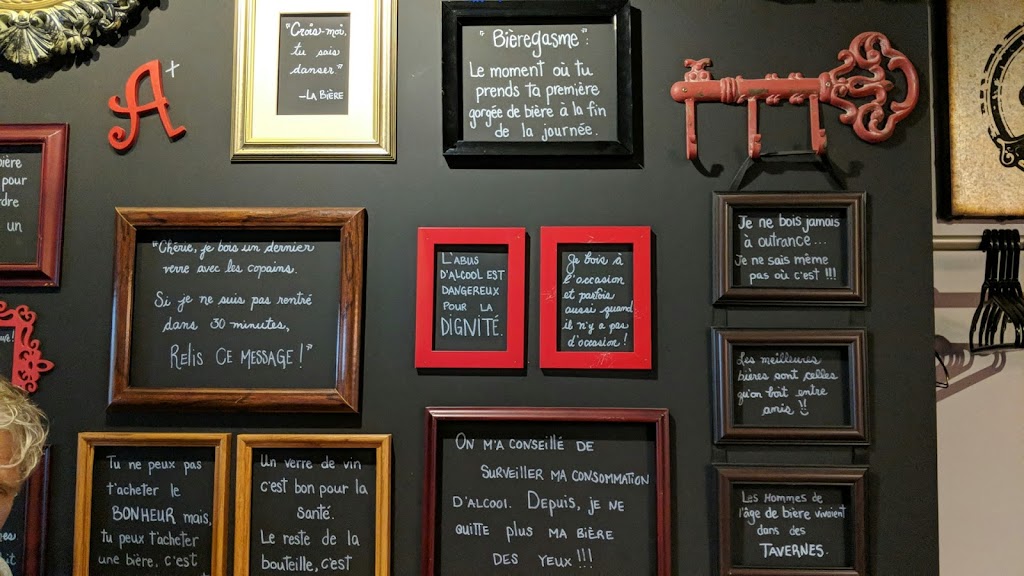 A+
"Crois-moi,
tu sais
danser."
-LA BIÈRE
"Bièregasme":
Le moment où tu
prends ta première
gorgée de bière à la fin
de la journée.
bière
pour
rdre
un
"Chérie, je bois un dernier
verre avec les copains.
Si je ne suis pas rentré
dans 30 minutes,
RELIS CE MESSAGE!"
L'ABUS
D'ALCOOL EST
DANGEREUX
POUR LA
DIGNITÉ.
Je bois à
l'occasion
et parfois
aussi quand
il n'y a pas
d'occasion!
Je ne bois jamais
à outrance...
Je ne sais même
pas où c'est!!!
Les meilleures
bières sont celles
qu'on boit entre
amis!!
Tu ne peux pas
t'acheter le
BONHEUR mais,
tu peux t'acheter
une bière, c'est
Un verre de vin
c'est bon pour la
santé.
Le reste de la
bouteille, c'est
ON M'A CONSEILLÉ DE
SURVEILLER MA CONSOMMATION
D'ALCOOL. DEPUIS, JE NE
QUITTE PLUS MA BIÈRE
DES YEUX!!!
LES HOMMES DE
l'âge de bière vivaient
dans des
TAVERNES.